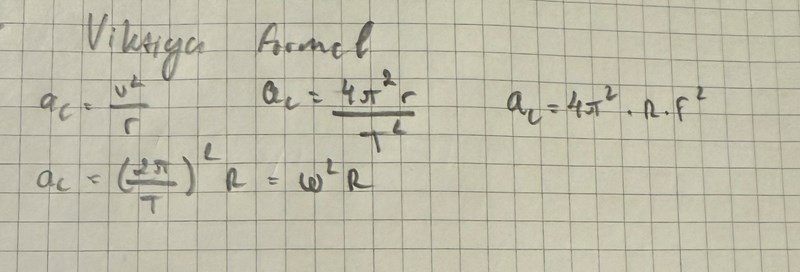 Viktiga formel
a_c = v²/r    a_c = 4π²r/T²    a_c = 4π² · R · f²
a_c = (2π/T)² R = ω² R